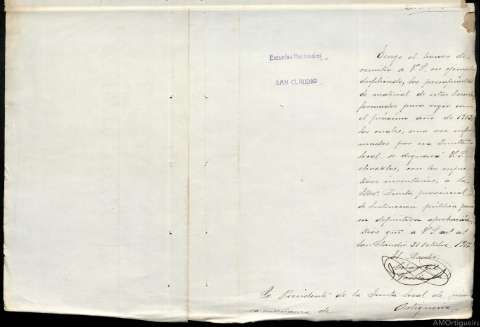 Escuelas Nacionales
SAN CLAUDIO
Tengo el honor de
remitir a V.S. en ejemplar
duplicado, los presupuestos
de material de estas Escuelas
formados para regir en
el próximo año de
los cuales, una vez infor-
mados por esa Junta
local se dignará V.S.
elevarlos, con los
inventarios, a la
Iltma. Junta provincial
de Instrucción pública para
su definitiva aprobación.
Dios gue. a V.S. m. a.
San Claudio 31 Octubre
El Maestro
Sr. Presidente de la Junta local de
de Ortigueira
AMOrtigueira